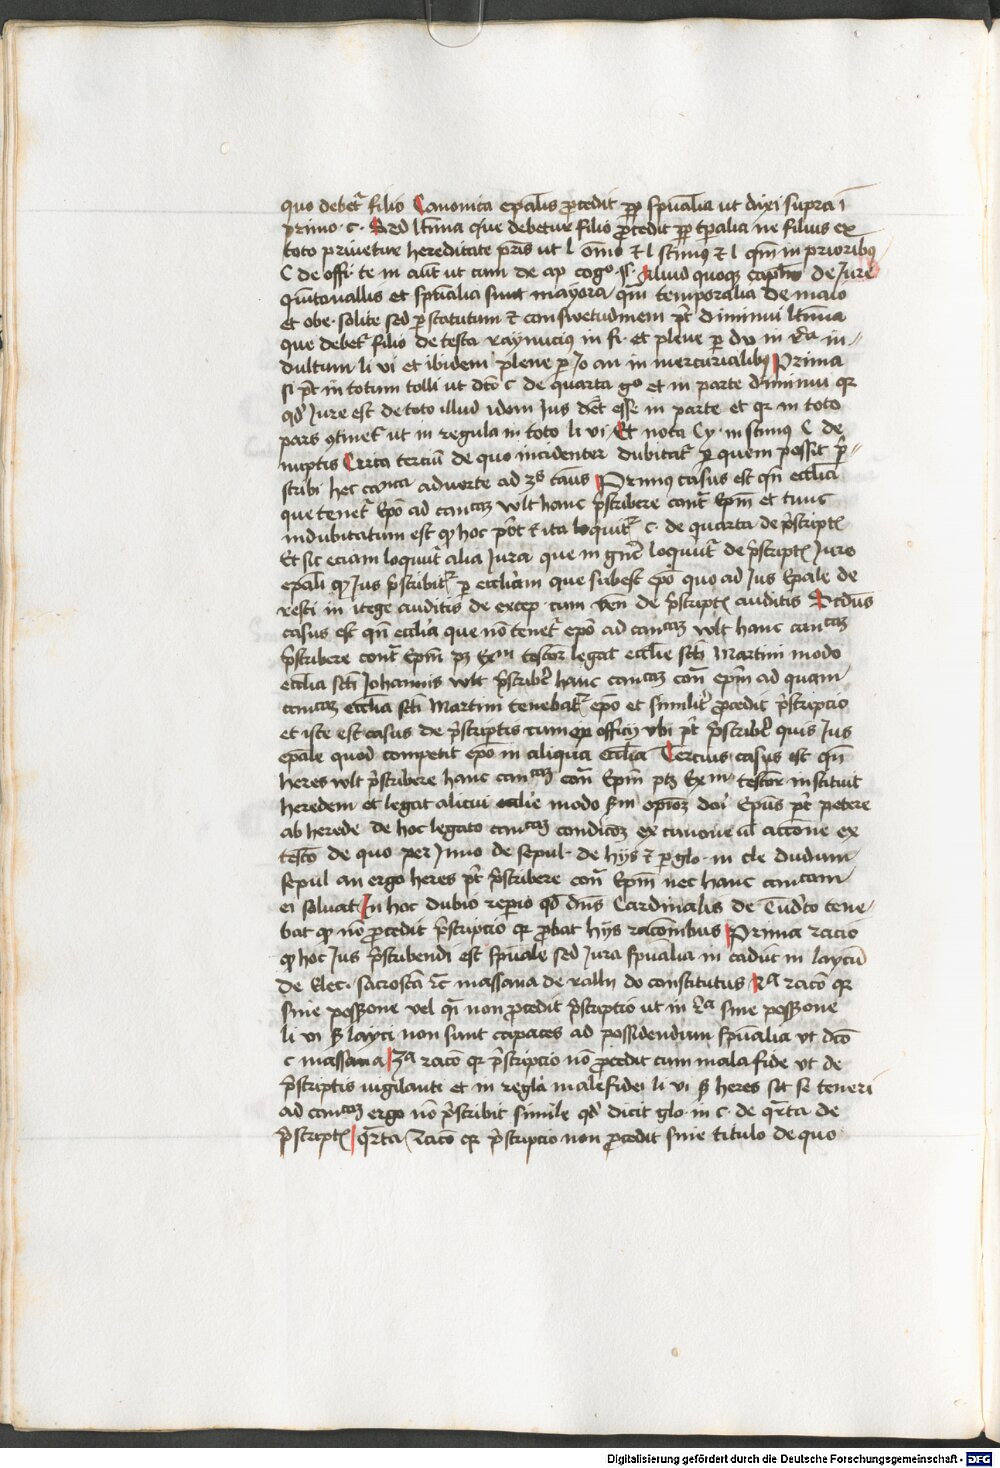 quo debet̄ filio Canonica ep̄alis p̄cedit pp̄ sp̄ualia ut dixi supra i
primo · c · Sed l̄tima que debetur filio p̄cedit pp̄ t̄palia ne filius ex
toto privetur hereditate pr̄is ut l om̄io & l scimus & l qm̄ in prioribus
C de offi te in aut̄ ut cum de ap cogo Illud quoque capl̄m de Jure
quitovallis et sp̄ualia sunt mayora qm̄ temporalia de maio
et obe · solite sed p̄ statutum & conswetudinem p̄t diminui l̄tima
que debet̄ filio de testa raynucius in fi · et plene p̄ do in in-
dultum li vi et ibidem plene p̄ Jo an in mercurialibus Prima
si p̄t in totum tolli ut dc̄o c de quarta go et in parte diminui qr
qd̄ Jure est de toto illud idem Jus d̄et esse in parte et qr in toto
pars 9tinet̄ ut in regula in toto li vi Et nota Cy · in scimus C de
nuptis Circa terciū de quo incidenter dubitat̄ p̄ quem possit p̄-
scribi hec canca adverte ad casus Primus casus est qn̄ ecclīa
que tenet̄ Ep̄o ad cancam wlt hanc p̄scribere cont̄ Ep̄m et tunc
indubitatum est q hoc p̄t & ita loquit̄ c · de quarta de p̄script
Et sic eciam loquūt̄ alia Jura que in gn̄e loquūt̄ de p̄script Jure
epali q Jus p̄scribit̄ p̄ eccl̄iam que subest ep̄o quo ad Jus Epale de
resti in itege auditis de excep cum ven de p̄script auditis Scdus
casus est qn̄ ecclīa que nō tenet̄ ep̄o ad cancam wlt hanc cancam
p̄scribere cont̄ Ep̄m testor legat ecclie sc̄ti Martini modo
ecclīa sc̄ti Johannis wlt p̄scribe̅ hanc cancam con̄ ep̄m ad quam
cancam ecclīa sc̄ti Martini tenebat̄ ep̄o et similit̄ p̄cedit p̄scriptio
et iste est casus de p̄scriptis cum ex officy ubi p̄t p̄scribe̅ quis Jus
ep̄ale quod competit ep̄o in aliqua ecclīa Tercius casus est qn̄
heres wlt p̄scribere hanc cancam con̄ Ep̄m testor instituit
heredem et legat alicui ecclīe modo Ep̄us p̄t petere
ab herede de hoc legato cancam ex canone ul accione ex
testo de quo per Jnno de sepul · de hys & p̄ glo · in cle dudum
sepul an ergo heres p̄t p̄scribere con̄ Ep̄m nec hanc cancam
ei solvat In hoc dubio reperio qd̄ dn̄s Cardinalis de tene-
bat q nō p̄cedit p̄scripcio qr probat hys racōnibus Prima racio
q hoc Jus p̄scribendi est sp̄uale sed Jura sp̄ualia nō cadūt in laycū
de Elec · sacrosc̄ta & c massana de rall do constitutus 2a racō qr
sine poss̄ione vel qi non p̄cedit p̄scriptio ut in sine poss̄ione
li vi S̄ layci non sunt capaces ad possidendum sp̄ualia ut dc̄o
c massana 3a racō qr p̄scripcio nō p̄cedit cum mala fide ut de
p̄scriptis vigilanti et in regla malefidei li vi S̄ heres scit se teneri
ad cancam ergo nō p̄scribit simile qd̄ dicit glo · in c · de qr̄ta de
p̄script qr̄ta racō qr p̄scripcio non p̄cedit sine titulo de quo
Digitalisierung gefördert durch die Deutsche Forschungsgemeinschaft - DFG